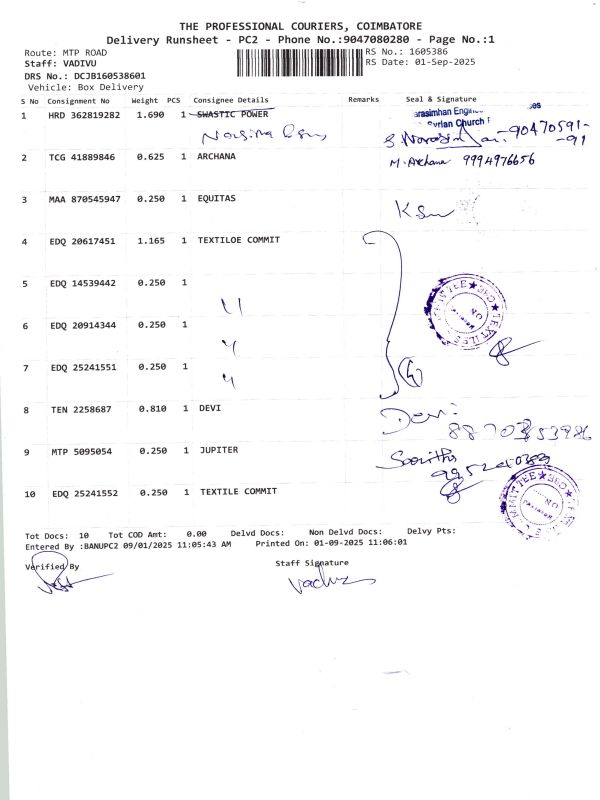 THE PROFESSIONAL COURIERS, COIMBATORE
Delivery Runsheet - PC2 - Phone No.:9047080280 - Page No.:1
Route: MTP ROAD
RS No.: 1605386
Staff: VADIVU
RS Date: 01-Sep-2025
DRS No.: DCJB160538601
Vehicle: Box Delivery
S No Consignment No Weight PCS Consignee Details Remarks Seal & Signature
1 HRD 362819282 1.690 1 SWASTIC POWER
arasimhan Engine
Syrian Church
90470591-
-91
2 TCG 41889846 0.625 1 ARCHANA M. Archana 9994976656
3 MAA 870545947 0.250 1 EQUITAS
4 EDQ 20617451 1.165 1 TEXTILOE COMMIT
5 EDQ 14539442 0.250 1
6 EDQ 20914344 0.250 1
7 EDQ 25241551 0.250 1
8 TEN 2258687 0.810 1 DEVI Devi
9 MTP 5095054 0.250 1 JUPITER
10 EDQ 25241552 0.250 1 TEXTILE COMMIT
Tot Docs: 10 Tot COD Amt: 0.00 Delvd Docs: Non Delvd Docs: Delvy Pts:
Entered By :BANUPC2 09/01/2025 11:05:43 AM Printed On: 01-09-2025 11:06:01
Verified By
Staff Signature